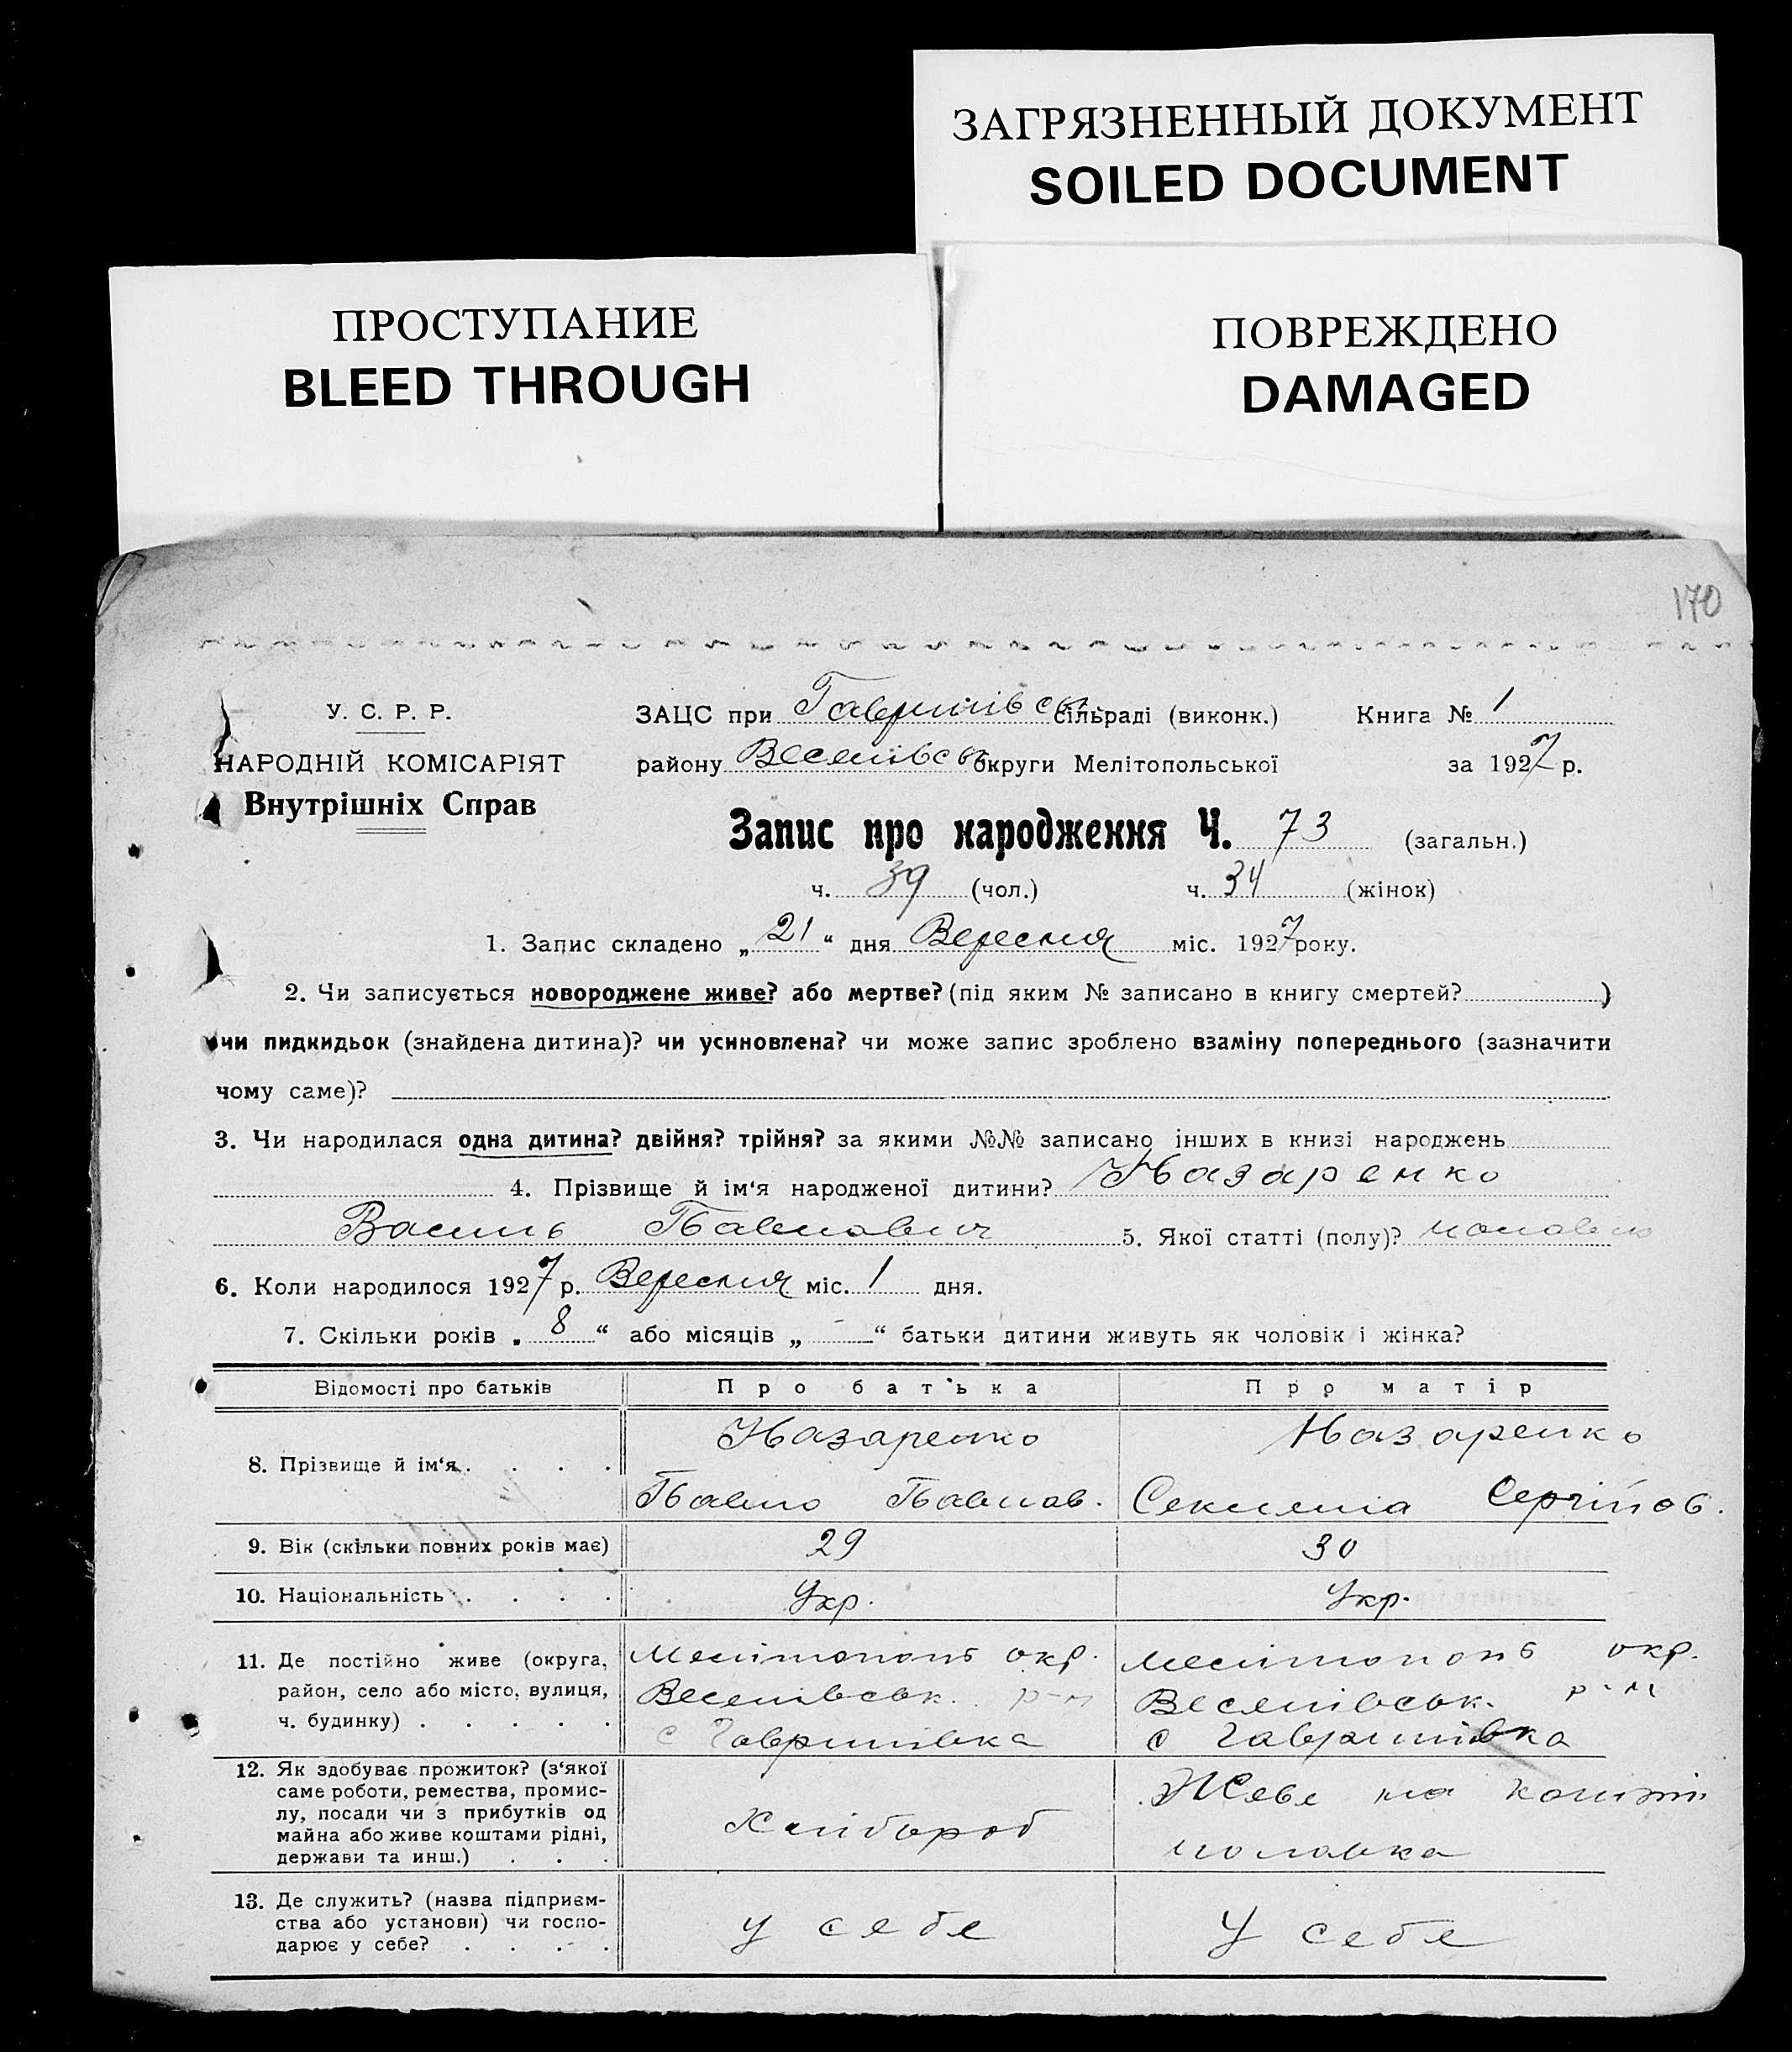 ЗАГРЯЗНЕННЫЙ ДОКУМЕНТ
SOILED DOCUMENT
ПРОСТУПАНИЕ
BLEED THROUGH
ПОВРЕЖДЕНО
DAMAGED
170
У. С. Р. Р.
НАРОДНІЙ КОМІСАРІЯТ
Внутрішніх Справ
ЗАЦС при Гаврилівськ сільраді (виконк.) Книга № 1
району Веселівськ округи Мелітопольської за 1927 р.
Запис про народження Ч. 73 (загальн.)
ч. 39 (чол.) ч. 34 (жінок)
1. Запис складено „21“ дня Вересня міс. 1927 року.
2. Чи записується новороджене живе? або мертве? (під яким № записано в книгу смертей? )
чи пидкидьок (знайдена дитина)? чи усиновлена? чи може запис зроблено взаміну попереднього (зазначити
чому саме)?
3. Чи народилася одна дитина? двійня? трійня? за якими №№ записано інших в книзі народжень
4. Прізвище й ім‘я народженої дитини? Назаренко
Василь Павлович 5. Якої статті (полу)?
6. Коли народилося 1927 р. Вересня міс. 1 дня.
7. Скільки років „8“ або місяців „-“ батьки дитини живуть як чоловік і жінка?
Відомості про батьків Про батька Про матір
8. Прізвище й ім‘я . . . . Назаренко Назаренко
Павло Павлов. Секлета Сергійов.
9. Вік (скільки повних років має) 29 30
10. Національність . . . . Укр. Укр.
11. Де постійно живе (округа, Мелітополь окр. Мелітополь окр.
район, село або місто, вулиця, Веселівськ. р-н Веселівськ. р-н
ч. будинку) . . . . . с Гаврилівка с Гаврилівка
12. Як здобуває прожиток? (з‘якої
саме роботи, ремества, промис-
лу, посади чи з прибутків од
майна або живе коштами рідні,
держави та инш.) . . .
Хлібороб
Живе на кошти
чоловка
13. Де служить? (назва підприєм-
ства або установи) чи госпо-
дарює у себе? . . . .
у себе У себе